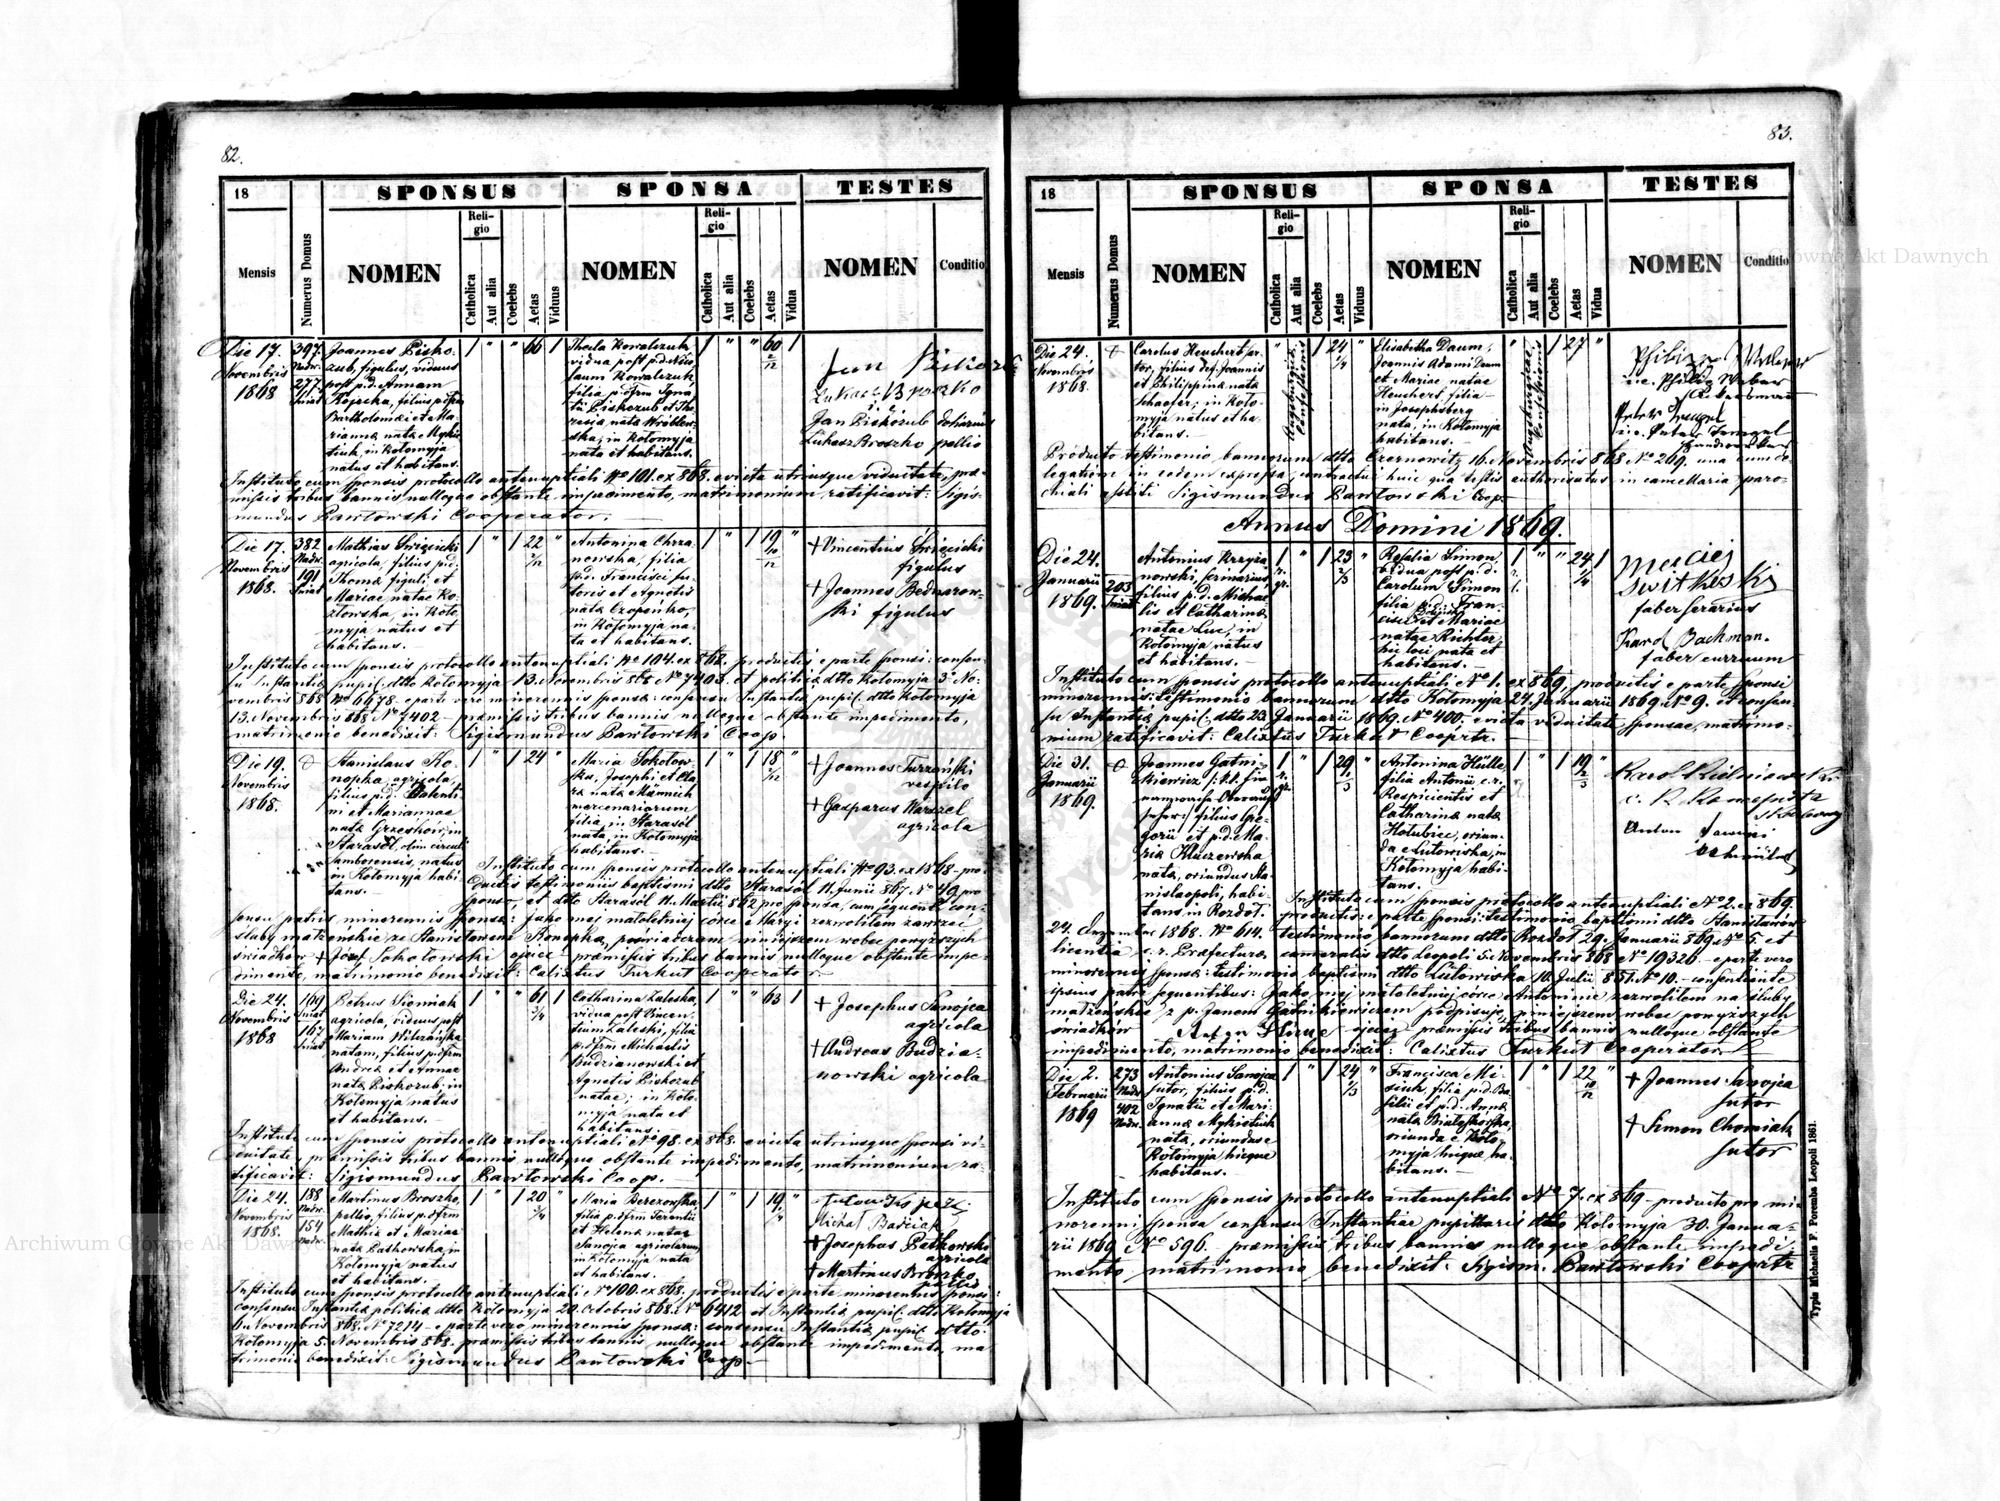 82.
18
SPONSUS
SPONSA
TESTES
Mensis
Numerus Domus
NOMEN
Religio
Catholica
Aut alia
Coelebs
Aetas
Viduus
NOMEN
Religio
Catholica
Aut alia
Coelebs
Aetas
Vidua
NOMEN
Conditio
Die 17.
Novembris
1868
397.
Nadw.
277.
Sniat
Joannes Pisko-
zub, figulus, viduus
post p.d. Annam
filius p.dftm
Bartholomaei et Ma-
rianna nata
in Kołomyja
natus et habitans.
1 " " 66 1
Thecla Kowalczuk
vidua post p.d. Nico-
laum Kowalczuk,
filia p.dftm Igna-
tii Piskozub et The-
resia nata Wróblew-
ska, in Kołomyja
nata et habitans.
1 " " 60 1
Jan
Łukasz Broszko
Jan Piskozub
Łukasz Broszko pellio
Instituto cum sponsis protocollo antenuptiali No 101. ex 868. evicta utriusque viduitate, præ-
missis tribus bannis nulloque obstante impedimento, matrimonium ratificavit: Sigis-
mundus Pawłowski Cooperator.
Die 17.
Novembris
1868.
382
Nadw.
191
Sniat
Mathias Swięcicki
agricola, filius p.d.
Thoma figuli et
Mariae natae Ko-
złowska, in Koło-
myja natus et
habitans.
1 " 1 22 "
Antonina Chrza-
nowska, filia
p.d. Francisci su-
toris et Agnetis
nata
in Kołomyja na-
ta et habitans.
1 " 1 19 "
+ Vincentius Swięcicki
figulus
+ Joannes Bednarow-
ski figulus
Instituto cum sponsis protocollo antenuptiali No 104. ex 868. productis e parte sponsi: consen-
su Instantiæ pupil. dtto Kołomyja 13. Novembris 868 No 7403. et politicæ dtto Kołomyja 3. No-
vembris 868 No 6678 e parte vero minorennis sponsæ: consensu Instantiæ pupil. dtto Kołomyja
13. Novembris 868 No 7402 præmissis tribus bannis nulloque obstante impedimento,
matrimonio benedixit: Sigismundus Pawłowski Coop.
Die 19.
Novembris
1868.
Stanislaus Ko-
nopka, agricola,
filius p.d. Valenti-
ni et Mariannae
nata in
Starasól, olim circuli
Samborensis, natus
in Kołomyja habi-
tans.
1 " 1 24 "
Maria Sokołow-
ska, Josephi et Cla-
ræ nata Männich
mercenariorum
filia, in Starasól
nata, in Kołomyja
habitans.
1 " 1 18 "
+ Joannes Turzański
vespilo
+ Gasparus
agricola
Instituto cum sponsis protocollo antenuptiali No 93. ex 1868 pro-
ductis testimoniis baptismi dtto Starasól 11. Junii 867. No 49 pro
sponso, et dtto Starasól 11. Martii 862 pro sponsa, cum sequente con-
sensu patris minorennis sponsæ: Jako mej małoletniej córce Maryi zezwoliłem zawrzeć
śluby małżeńskie ze Stanisławem Konopka, poświadczam niniejszem wobec powyższych
świadków + Józef Sokołowski ojciec præmissis tribus bannis nulloque obstante impe-
dimento, matrimonio benedixit: Calixtus Turkut Cooperator
Die 24.
Novembris
1868
169
Sniat
167
Sniat
Petrus Sioniak
agricola, viduus post
Mariam
natam, filius p.dftm
Andreæ et Annae
nata Piskozub, in
Kołomyja natus
et habitans.
1 " " 61 1
Catharina Zaleska,
vidua post Vincen-
tium Zaleski, filia
p.dftm Michaelis
Budzianowski et
Agnetis Piskozub
natae; in Koło-
myja nata et
habitans.
1 " " 63 1
+ Josephus Sanojca
agricola
+ Andreas Budzia-
nowski agricola
Instituto cum sponsis protocollo antenuptiali No 98. ex 868. evicta utriusque sponsi vi-
duitate, præmissis tribus bannis nulloque obstante impedimento, matrimonium ra-
tificavit: Sigismundus Pawłowski Coop.
Die 24.
Novembris
1868.
188
Nadw.
154
Nadw.
Martinus Broszko,
pellio, filius p.dftm
Mathiæ et Mariae
nata Patkowska, in
Kołomyja natus
et habitans.
1 " 1 20 "
Maria Berezowska
filia p.dftm Terentii
et Helenæ natae
Sanojca agricolarum,
in Kołomyja nata
et habitans.
1 " 1 19 "
Michał
+ Josephus Patkowski
agricola
+ Martinus Broszko
pellio
Instituto cum sponsis protocollo antenuptiali No 100. ex 868. productis e parte minorennis sponsi:
consensu Instantiæ politicæ dtto Kołomyja 20. Octobris 868. No 6412 et Instantiæ pupil. dtto Kołomyja
6. Novembris 868. No 7214 e parte vero minorennis sponsæ: consensu Instantiæ pupil. dtto.
Kołomyja 5. Novembris 868. præmissis tribus bannis nulloque obstante impedimento, ma-
trimonio benedixit: Sigismundus Pawłowski Coop.
83.
18
SPONSUS
SPONSA
TESTES
Mensis
Numerus Domus
NOMEN
Religio
Catholica
Aut alia
Coelebs
Aetas
Viduus
NOMEN
Religio
Catholica
Aut alia
Coelebs
Aetas
Vidua
NOMEN
Conditio
Die 24.
Novembris
1868.
Carolus Heuchert sar-
tor, filius def. Joannis
et Philippina nata
Schaefer, in Koło-
myja natus et ha-
bitans.
" Augsburgicae Confessionis 1 24 "
Elisabetha Daum,
Joannis Adami Daum
et Mariae natae
Heuchert, filia
in Josephsberg
nata, in Kołomyja
habitans.
" Augsburgicae Confessionis 1 27 "
Philipp Weber
i.e. Philip Weber
Peter
i.e. Peter
Producto testimonio bannorum dtto Czernowitz 16. Novembris 868 No 269. una cum de-
legatione in eodem expressa, contractui huic qua testis authorisatus in camellaria paro-
chiali astiti Sigismundus Pawłowski Coop.
Annus Domini 1869.
Die 24.
Januarii
1869.
203
Sniat
Antonius Krzyża-
nowski,
filius p.d. Michae-
lis et Catharinæ
natae Luc, in
Kołomyja natus
et habitans.
1 " 1 23 "
Rosalia Simon
vidua post p.d.
Carolum Simon
filia p.d. Fran-
cisci et Mariae
natae Richter,
hic loci nata et
habitans.
1 " " 24 1
Maciej
Switkoski
faber ferarius
Karol Bachman.
faber curruum
Instituto cum sponsis protocollo antenuptiali No 1. ex 869, productis e parte sponsi
minorennis: testimonio bannorum dtto Kołomyja 24. Januarii 1869. No 9. et consen-
su Instantiæ pupil. dtto 22. Januarii 1869. No 400. evicta viduitate sponsae, matrimo-
nium ratificavit: Calixtus Turkut Cooprtr.
Die 31.
Januarii
1869.
Joannes Gatni-
kiewicz
filius Gre-
gorii et p.d. Ma-
ria Kluczewska
nata, oriundus Sta-
nislaopoli, habi-
tans in Rozdół.
1 " 1 29 "
Antonina Hülle,
filia Antonii c.r.
Respicientis et
Catharina nata
Hołubiec, oriun-
da e Lutowiska, in
Kołomyja habi-
tans.
1 " 1 19 "
Karol
Anton
Instituto cum sponsis protocollo antenuptiali No 2. ex 869.
productis: e parte sponsi: testimonio baptismi dtto Stanisławów
24. 1868. No 614. testimonio bannorum dtto Rozdół 29. Januarii 869 No 5. et
licentia c.r. Præfecturæ cameralis dtto Leopoli 5. Novembris 868 No 19326 e parte vero
minorennis sponsæ: testimonio baptismi dtto Lutowiska 10. Julii 851. No 10. consentiente
ipsius patre sequentibus: Jako mej małoletniej córce Antoninie zezwoliłem na śluby
małżeńskie z p. Janem Gatnikiewiczem podpisuję niniejszem wobec powyższych
świadków Anton Hülle ojciec præmissis tribus bannis nulloque obstante
impedimento, matrimonio benedixit: Calixtus Turkut Cooperator
Die 2.
Februarii
1869
273
Nadw.
402
Nadw.
Antonius Sanojca
sutor, filius p.d.
Ignatii et Mari-
anna Mykietiuk
nata, oriundus e
Kołomyja hicque
habitans.
1 " 1 24 "
Francisca Mi-
siuk, filia p.d. Ba-
silii et p.d. Anna
nata Białoskórska,
oriunda e Koło-
myja hicque ha-
bitans.
1 " 1 22 "
+ Joannes Sanojca
sutor
+ Simon Chomiak
sutor
Instituto cum sponsis protocollo antenuptiali No 7. ex 869 producto pro mi-
norenni sponsa consensu Instantiae pupillaris dtto Kołomyja 30. Janua-
rii 1869 No 596. præmissis tribus bannis nulloque obstante impedi-
mento matrimonio benedixit: Sigism. Pawłowski Cooprtr
Typis Michaelis F. Poremba Leopoli 1861.
Archiwum Główne Akt Dawnych
Archiwum Główne Akt Dawnych